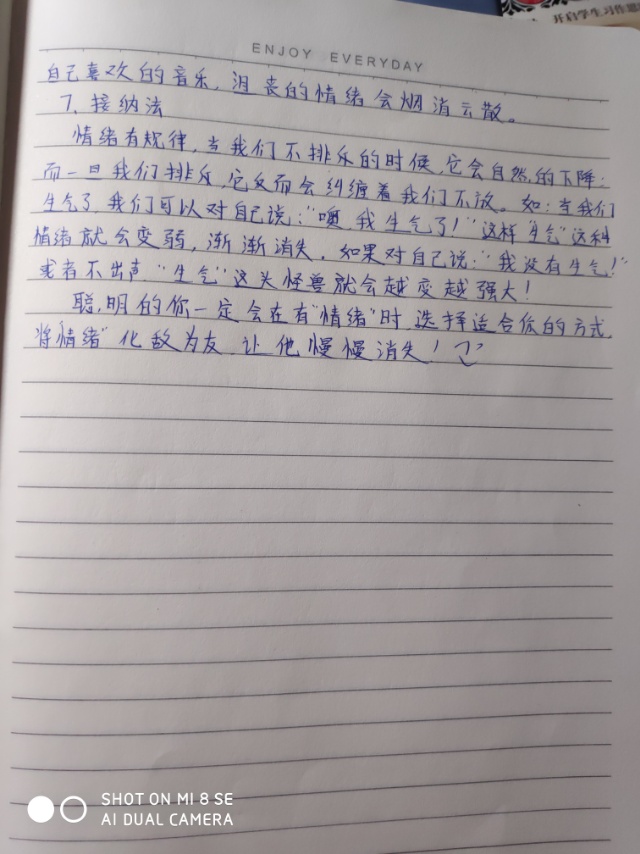 开启学生习作思
ENJOY EVERYDAY
自己喜欢的音乐，沮丧的情绪会烟消云散。
7、接纳法
情绪有规律，当我们不排斥的时候，它会自然的下降；
而一旦我们排斥，它反而会纠缠着我们不放。如：当我们
生气了，我们可以对自己说：“噢，我生气了！”这样“生气”这种
情绪就会变弱，渐渐消失。如果对自己说：“我没有生气！”
或者不出声，“生气”这头怪兽就会越变越强大！
聪明的你一定会在有“情绪”时选择适合你的方式，
将“情绪”化敌为友，让他慢慢消失！
SHOT ON MI 8 SE
AI DUAL CAMERA